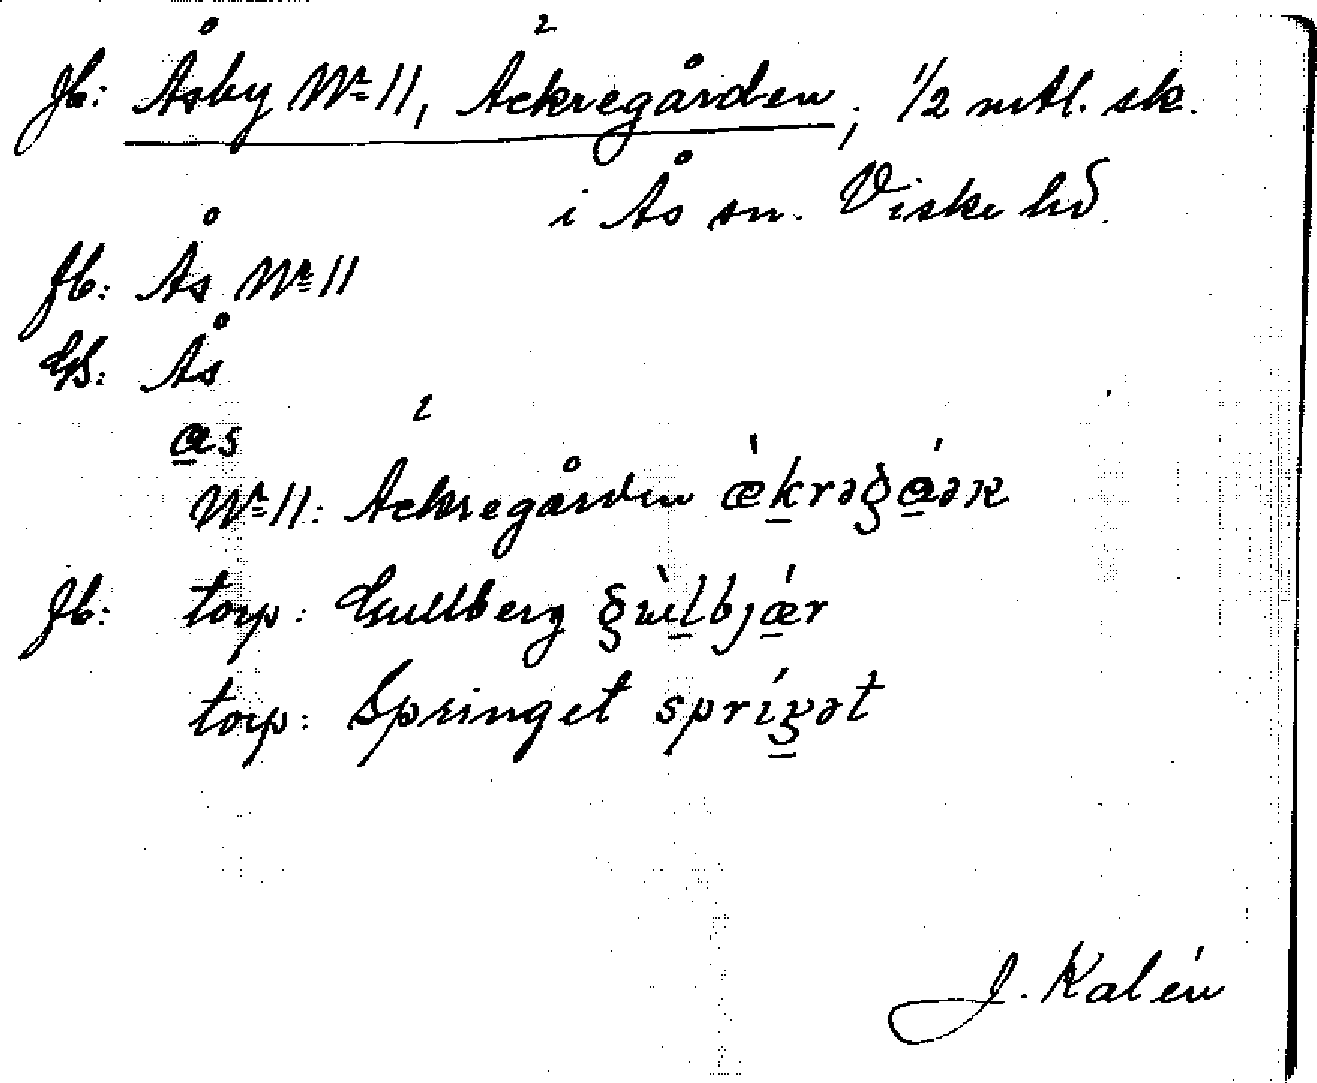 Jb: Åsby Nr 11, Äckregården, 1/2 mtl. sk.
i Ås sn. Viske hd.
Jb: Ås Nr 11
GS: Ås
as
Nr 11: Äckregården æ̀krəgáəɴ
Jb: torp: Gullberg gùlbjǽr
torp: Springet spríŋət
J. Kalén